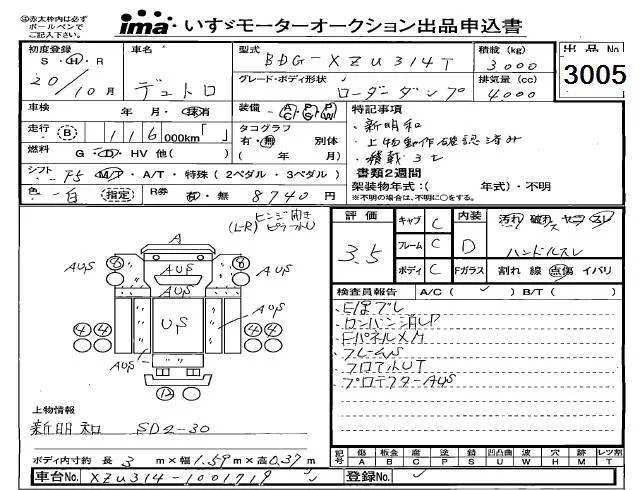 ㊟赤太枠内は必ず
ボールペンで
ご記入下さい。
ima いすゞモーターオークション出品申込書
初度登録 車名 型式 BDG-XZU314T 積載 (kg) 3000 出品No
S・H・R 20/10月 デュトロ グレード・ボディ形状 ローダーダンプ 排気量 (cc) 4000 3005
車検 年・月・抹消 装備 AC PS PW 特記事項
走行 B 116 000km「 」 タコグラフ 有・無 別体 ・新明和
燃料 G・D・HV 他( ) ( 年 月) ・上物動作確認済み
・積載3t
シフト F5 M/T・A/T・特殊(2ペダル・3ペダル) 書類2週間
色 白 (指定) R券 有・無 8740円 架装物年式:( 年式)・不明
※不明の場合は、不明に○をする。
ヒンジ開き
(L-R) ピラーU
評価 3.5 キャブ C 内装 D 汚れ 破れ ヤニ スレ
フレーム C ハンドルスレ
ボディ C Fガラス 割れ 線 点傷 イバリ
A
8 8
AUS AUS AUS
AUS
US AUS
4 4 4 4
AUS
12
検査員報告 A/C( ✓ ) B/T( )
フレームS
フロアUT
プロテクターAUS
上物情報
新明和 SD2-30
記号 傷 A 板金 B 腐 C 塗 P 錆 S 凹凸曲 U 波 W 穴 H 跡 M レツ割 T
ボディ内寸約 長 3 m×幅 1.59 m×高 0.37 m
車台No. XZU314-1001719 登録No.